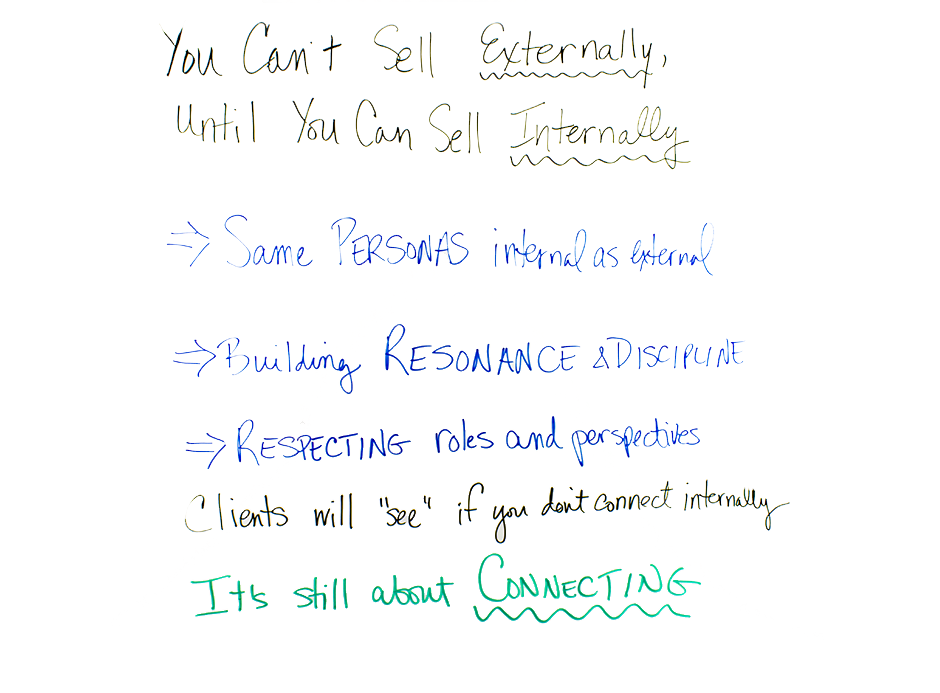 You Can't Sell Externally,
Until You Can Sell Internally
⇒ Same PERSONAS internal as external
⇒ Building RESONANCE & DISCIPLINE
⇒ RESPECTING roles and perspectives
Clients will "see" if you don't connect internally
It's still about CONNECTING